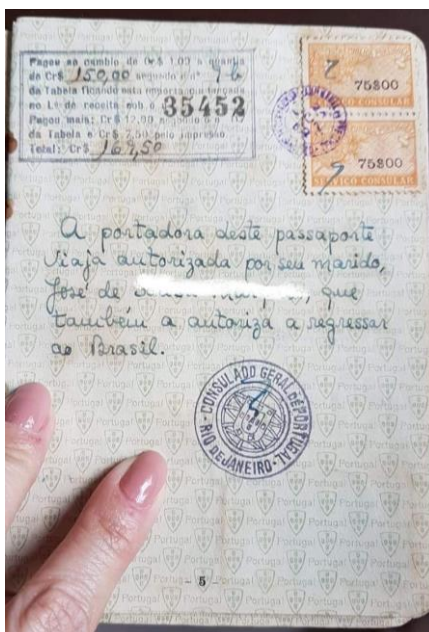 Pagou ao cambio de Cr$ 1,00 a quantia
de Cr$ 150,00 segundo o nº
da Tabela ficando esta importancia lançada
no L.º de receita sob o 35452
Pagou mais: Cr$ 12,00
da Tabela e Cr$ 7,50 pelo impresso.
Total: Cr$ 169,50
75$00
SERVIÇO CONSULAR
75$00
SERVIÇO CONSULAR
A portadora deste passaporte
viaja autorizada por seu marido,
José de que
também a autoriza a regressar
ao Brasil.
CONSULADO GERAL DE PORTUGAL
RIO DE JANEIRO
- 5 -